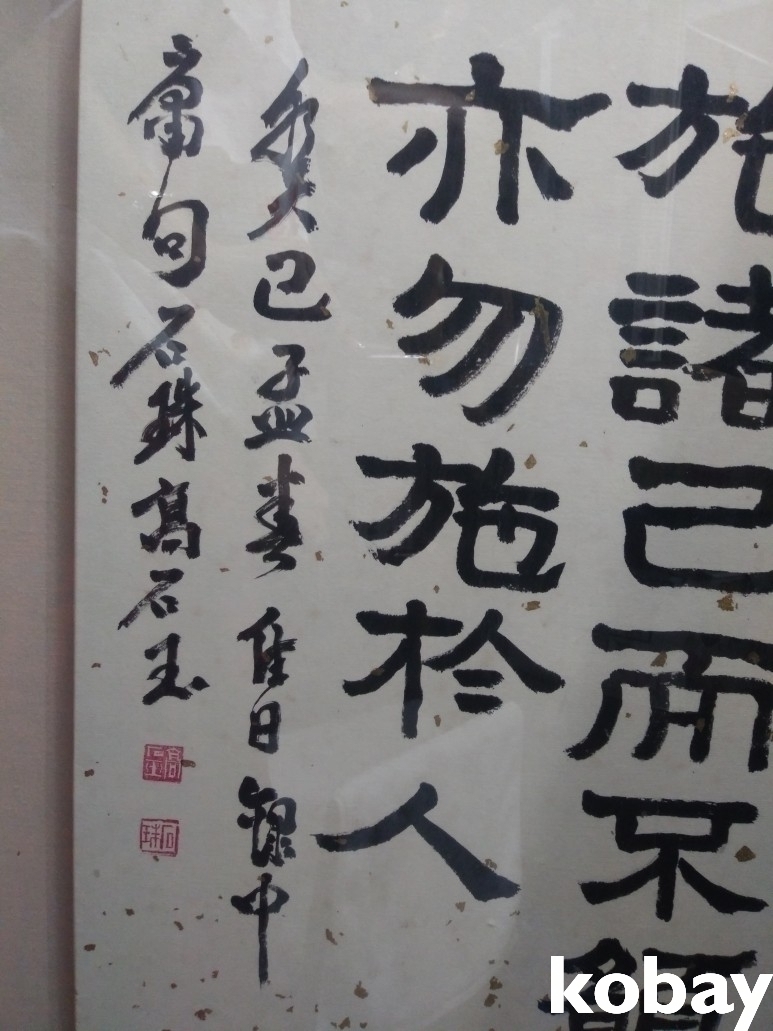 施諸己而不願
亦勿施於人
癸巳孟春佳日錄中
庸句石珠高石玉
石珠
kobay